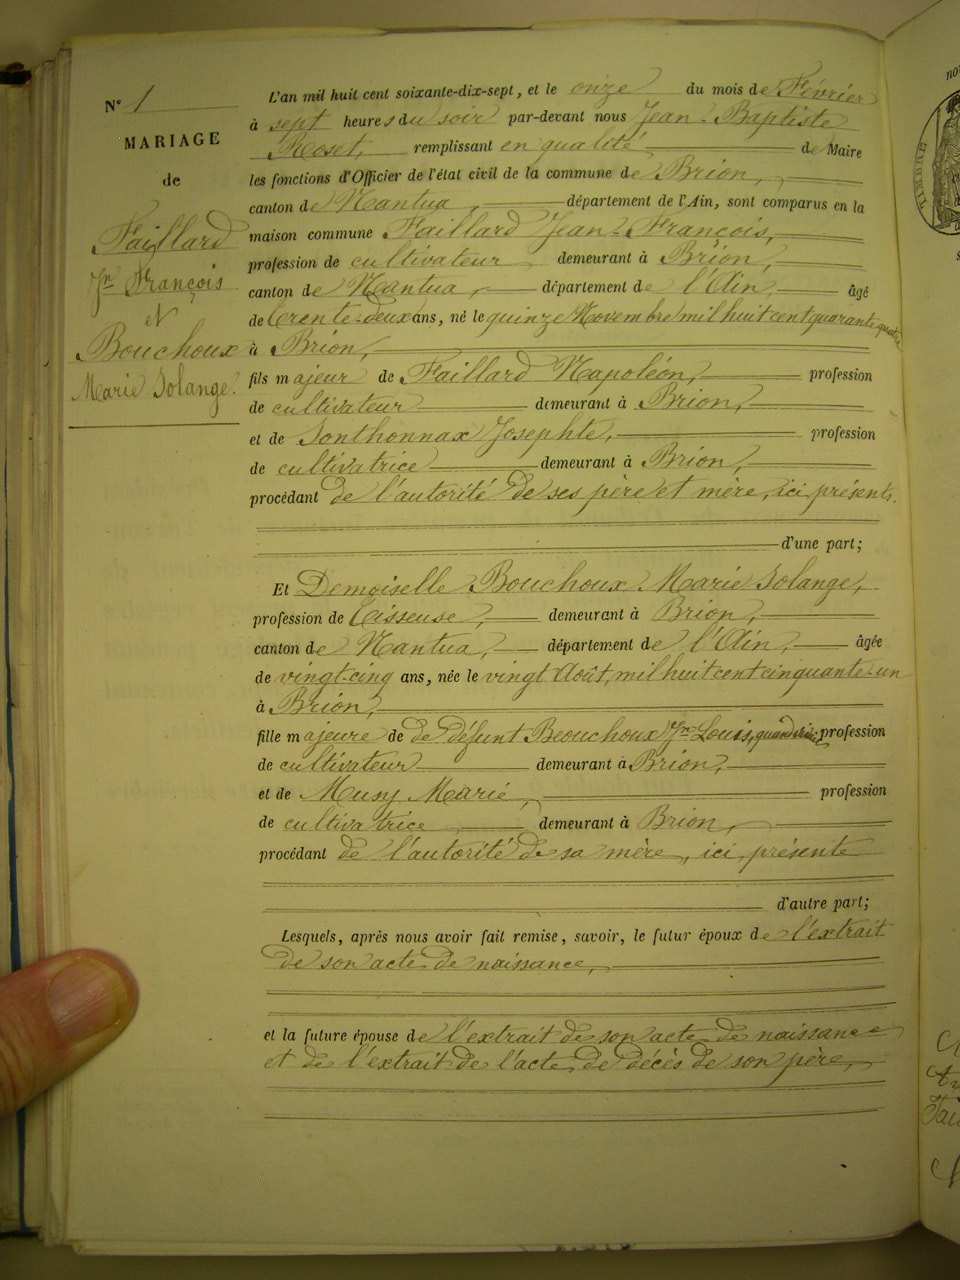 N° 1
MARIAGE
de
Faillard
Jn François
et
Bouchoux
Marie Solange.
L'an mil huit cent soixante-dix-sept, et le onze du mois de Février
à sept heures du soir par-devant nous Jean-Baptiste
Roset, remplissant en qualité de Maire
les fonctions d'Officier de l'état civil de la commune de Brion,
canton de Nantua, département de l'Ain, sont comparus en la
maison commune Faillard Jean-François,
profession de cultivateur demeurant à Brion,
canton de Nantua, département de l'Ain, âgé
de trente-deux ans, né le quinze Novembre mil huit cent quarante quatre
à Brion,
fils majeur de Faillard Napoléon, profession
de cultivateur demeurant à Brion,
et de Sonthonnax Josephte, profession
de cultivatrice demeurant à Brion,
procédant de l'autorité de ses père et mère, ici présents.
d'une part;
Et Demoiselle Bouchoux Marie Solange,
profession de tisseuse, demeurant à Brion,
canton de Nantua, département de l'Ain, âgée
de vingt-cinq ans, née le vingt Août, mil huit cent cinquante-un
à Brion,
fille majeure de de défunt Beouchoux Jn Louis, quand vivait profession
de cultivateur demeurant à Brion,
et de Musy Marie, profession
de cultivatrice demeurant à Brion,
procédant de l'autorité de sa mère, ici présente
d'autre part;
Lesquels, après nous avoir fait remise, savoir, le futur époux de l'extrait
de son acte de naissance,
et la future épouse de l'extrait de son acte de naissance
et de l'extrait de l'acte de décès de son père,
TIMBRE